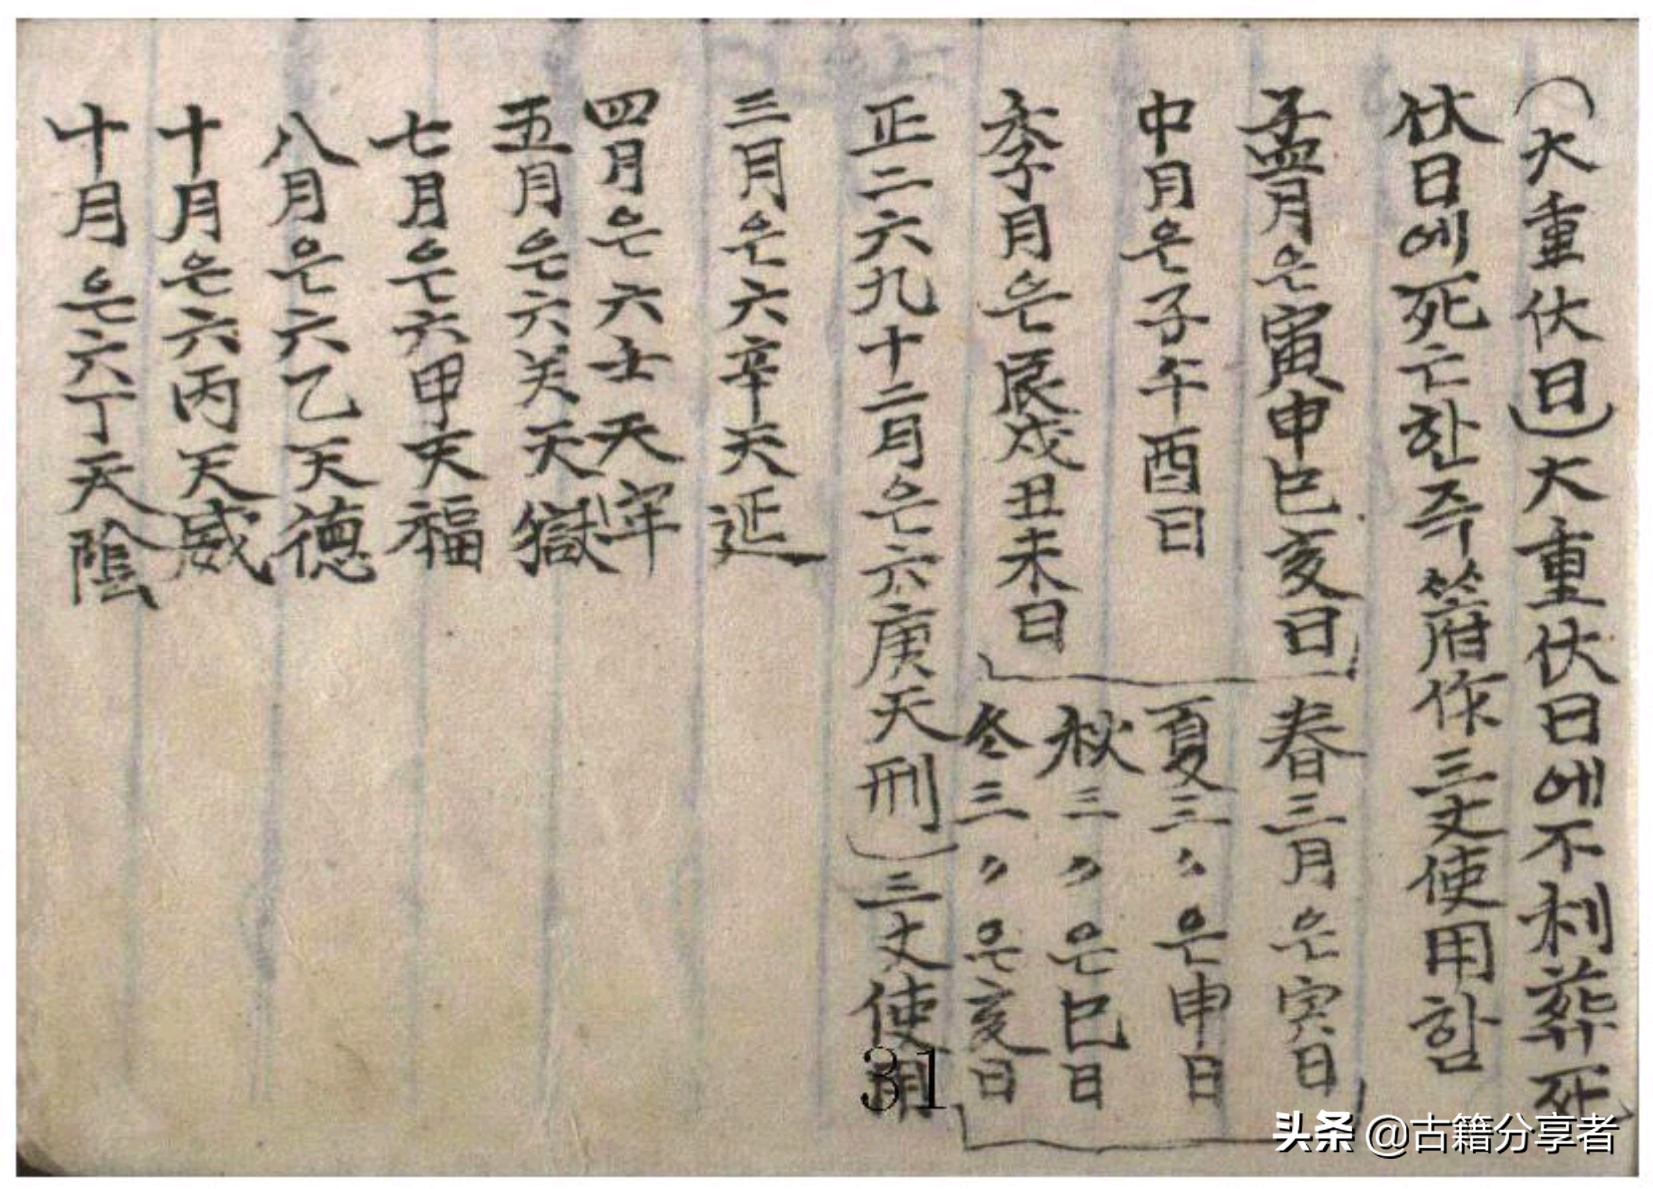 (大重伏日)大重伏日에不利葬死
伏日에死亡한즉符作三丈使用함
孟月은寅申巳亥日
中月은子午酉日
季月은辰戌丑未日
春三月은寅日
夏三〃은申日
秋三〃은巳日
冬三〃은亥日
正二六九十二月은六庚天刑 三丈使用
三月은六辛天延
四月은六士天牢
五月은六关天獄
七月은六甲天福
八月은六乙天德
十月은六丙天威
十月은六丁天陰
31
头条 @古籍分享者